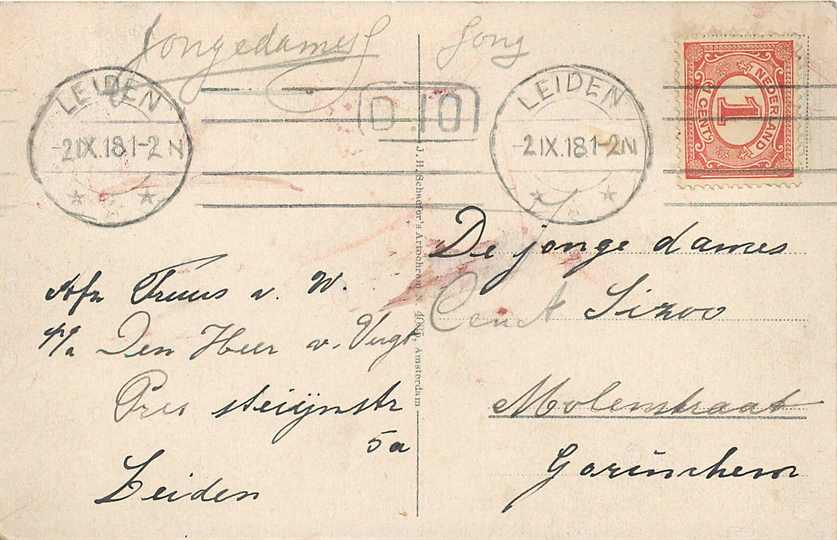 Jongedames
Jong
LEIDEN
-2 IX.18 1-2 N
D 10
LEIDEN
-2 IX.18 1-2 N
NEDERLAND
1
1 CENT
De jonge dames
C en A Sizoo
Molenstraat
Gorinchem
Afz Truus v. W.
p/a Den Heer v. Vugt
Pres steijnstr
5a
Leiden
Amsterdam